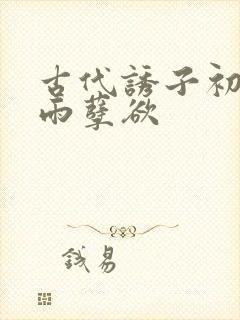 古代誘子初
雨孽欲
钱易